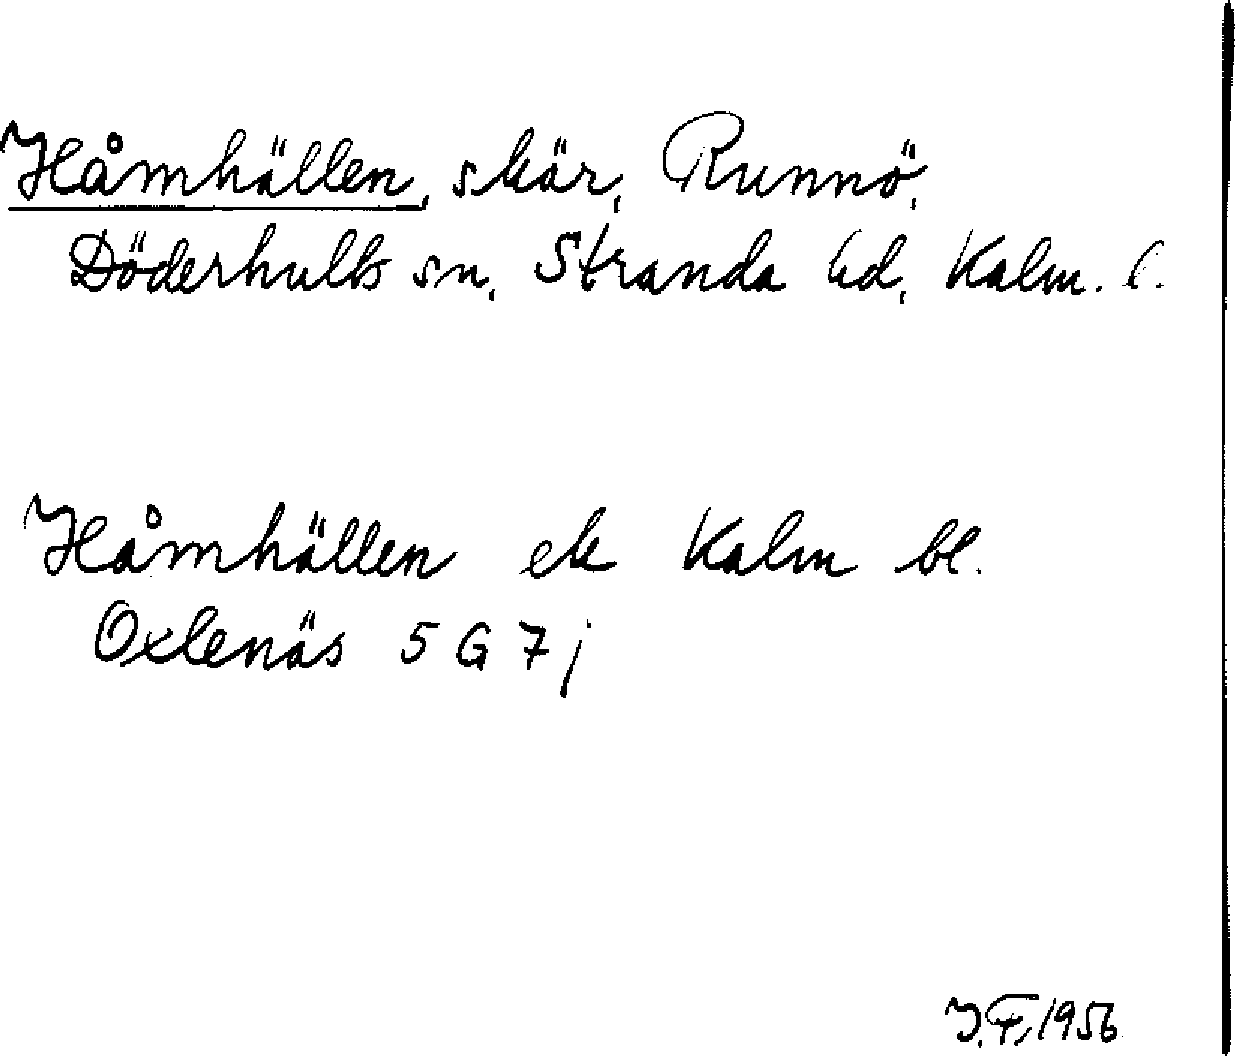 Håmhällen, skär, Runnö,
Döderhults sn, Stranda hd, Kalm. l.
Håmhällen ek Kalm bl.
Oxlenäs 5 G 7 j
J.F, 1956